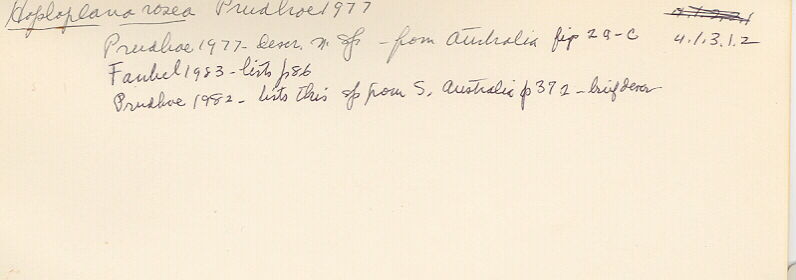 Hoploplana rosea Prudhoe 1977
4.1.3.1.2
Prudhoe 1977 - descr. n. sp - from Australia fig 2a-c
Faubel 1983 - lists p86
Prudhoe 1982 - lists this sp from S. Australia p 372 - brief descr